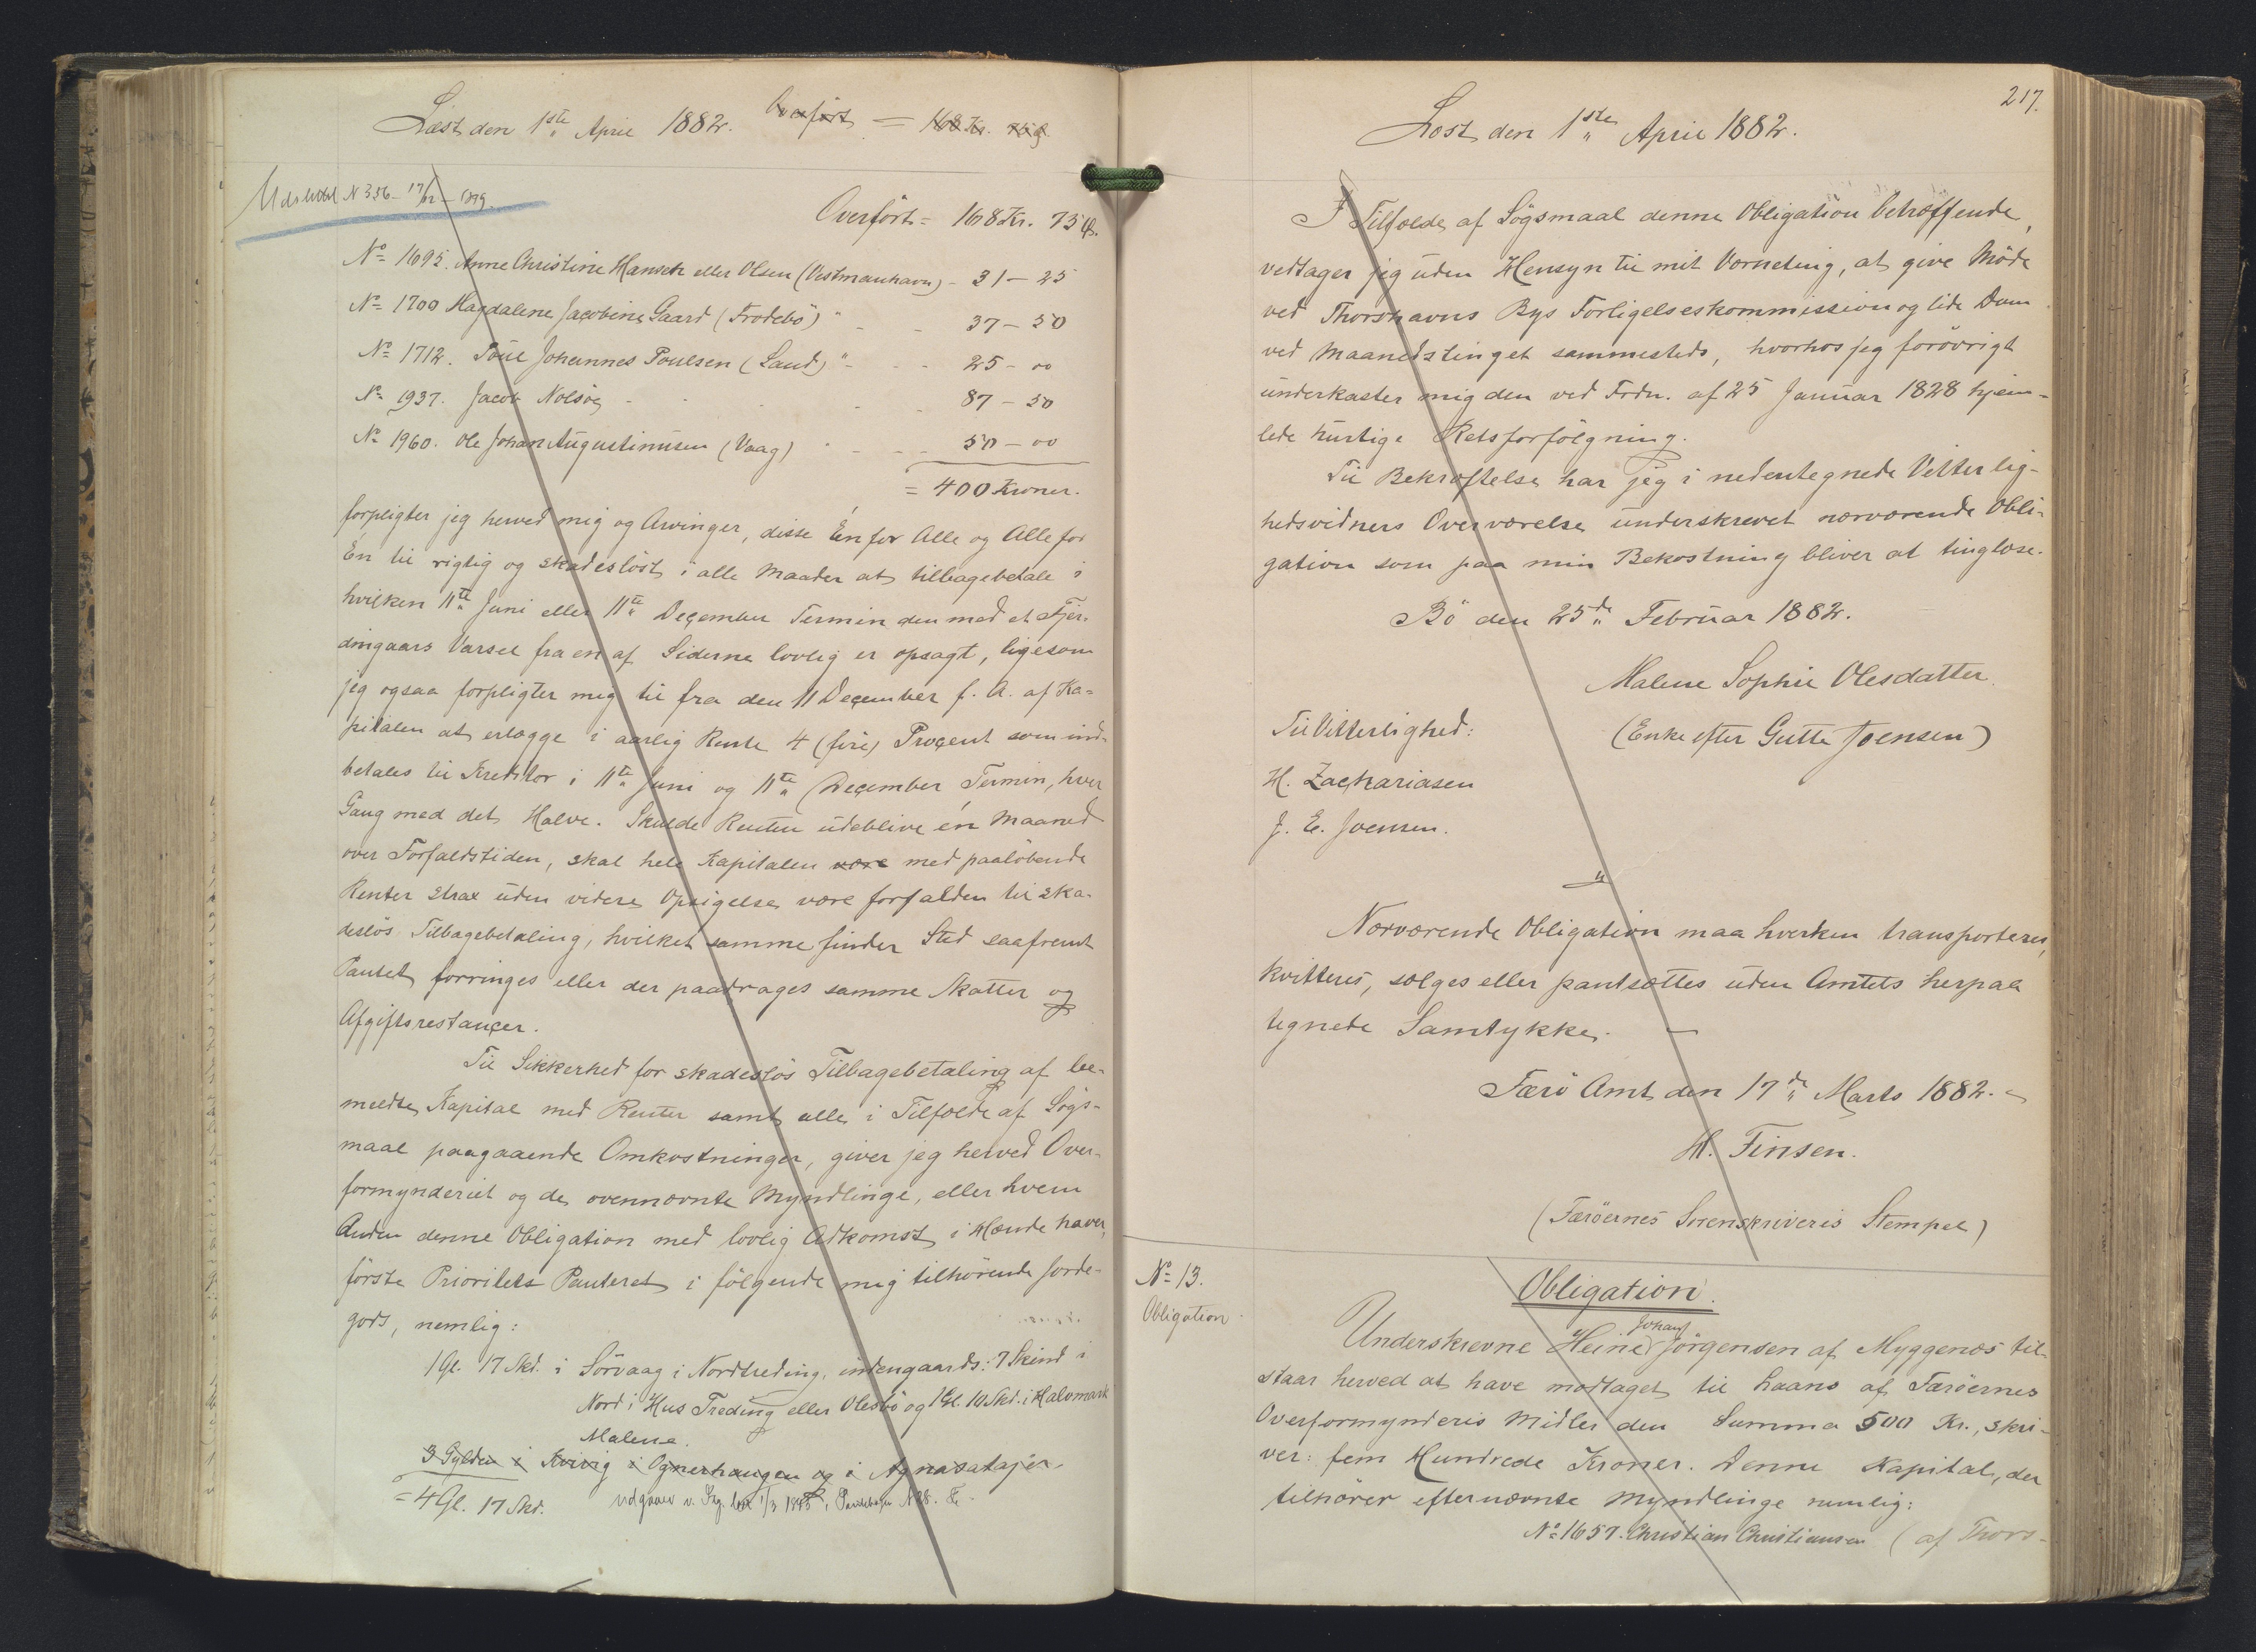 Læst den 1ste April 1882. Overført = 168 Kr. 75 Ø.
Udslettet N 356 - 17/12 - 1919.
Overført = 168 Kr. 75 Ø.
No 1695. Anne Christine Hansen eller Olsen (Vestmanhavn) - 31 - 25
No 1700 Magdalene Jacobine Gaard (Frodebö) " - - 37 - 50
No 1712. Poul Johannes Poulsen (Sand) " - - - 25 - 00
No 1937. Jacob Nolsöe - - - - - 87 - 50
No 1960. Ole Johan Augustinusen (Vaag) " - - - 50 - 00
= 400 Kroner.
forpligter jeg herved mig og Arvinger, disse Én for Alle og Alle for
Én til rigtig og skadeslöst i alle Maader at tilbagebetale i
hvilken 11te Juni eller 11te December Termin den med et Fjer-
dingaars Varsel fra en af Siderne lovlig er opsagt, ligesom
jeg ogsaa forpligter mig til fra den 11 December f. A. af Ka-
pitalen at erlægge i aarlig Rente 4 (fire) Procent som ind-
betales til Kreditor i 11te Juni og 11te December Termin, hver
Gang med det Halve. Skulde Renten udeblive én Maaned
over Forfaldstiden, skal hele Kapitalen være med paalöbende
Renter strax uden videre Opsigelse være forfalden til ska-
deslös Tilbagebetaling, hvilket samme finder Sted saafremt
Pantet forringes eller der paadrages samme Skatter og
Afgiftsrestancer.
Til Sikkerhed for skadeslös Tilbagebetaling af be-
meldte Kapital med Renter samt alle i Tilfælde af Sögs-
maal paagaaende Omkostninger, giver jeg herved Over-
formynderiet og de ovennævnte Myndlinge, eller hvem
Anden denne Obligation med lovlig Adkomst i Hænde haver,
förste Prioritets Panteret i fölgende mig tilhörende Jorde-
gods, nemlig:
1 Gl. 17 Skd. i Sörvaag i Nordtreding, indengaards: 7 Skind i
Nord i Hus Treding eller Olesbö og 1 Gl. 10 Skd. i Halvmark
Malene.
3 Gylden i Kvivig i Ognerhaugen og i Agnasatajer.
= 4 Gl. 17 Skd. udgaaer v. Pantebog N 28.
217.
Læst den 1ste April 1882.
I Tilfælde af Sögsmaal denne Obligation betræffende,
vedtager jeg uden Hensyn til mit Værneting, at give Möde
ved Thorshavns Bys Forligelseskommission og lide Dom
ved Maanedstinget sammesteds, hvorhos jeg forövrigt
underkaster mig den ved Frdn. af 25 Januar 1828 hjem-
lede hurtige Retsforfölgning.
Til Bekræftelse har jeg i nedentegnede Vitterlig-
hedsvidners Overværelse underskrevet nærværende Obli-
gation som paa min Bekostning bliver at tinglæse.
Bö den 25de Februar 1882.
Malene Sophie Olesdatter.
Til Vitterlighed: (Enke efter Gutte Joensen)
H. Zachariasen
J. E. Joensen.
Nærværende Obligation maa hverken transporteres,
kvitteres, sælges eller pantsættes uden Amtets herpaa
tegnede Samtykke. —
Færö Amt den 17de Marts 1882.
H. Finsen.
(Færöernes Sorenskriveris Stempel)
No 13.
Obligation
Obligation.
Johan
Underskrevne Heine Jörgensen af Myggenæs til-
staar herved at have modtaget til Laans af Færöernes
Overformynderis Midler den Summa 500 Kr., skri-
ver: fem Hundrede Kroner. Denne Kapital, der
tilhörer efternævnte Myndlinge nemlig:
No 1657. Christian Christiansen (af Thors-